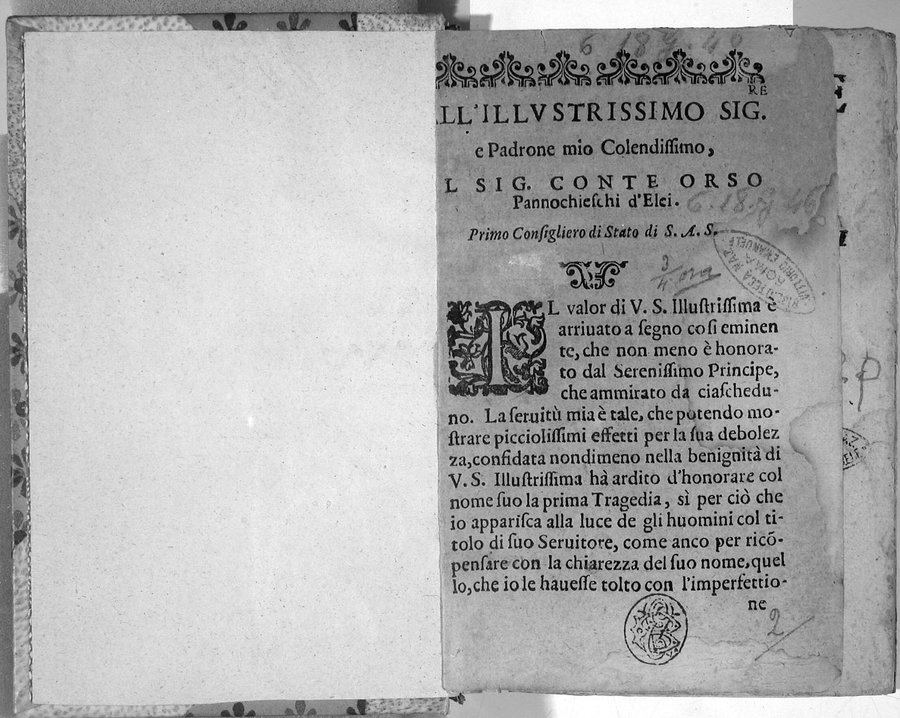 6 18 49
RE
LL'ILLVSTRISSIMO SIG.
e Padrone mio Colendiſſimo,
L SIG. CONTE ORSO
Pannochieſchi d'Elci.
Primo Conſigliero di Stato di S. A. S.
BIBLIOTECA NAZ
ROMA
VITTORIO EMANUELE
IL valor di V. S. Illuſtriſſima è
arriuato a ſegno coſi eminen
te, che non meno è honora-
to dal Sereniſſimo Principe,
che ammirato da ciaſchedu-
no. La ſeruitù mia è tale, che potendo mo-
ſtrare picciolíſſimi effetti per la ſua debolez
za,confidata nondimeno nella benignità di
V. S. Illuſtriſſima hà ardito d'honorare col
nome ſuo la prima Tragedia, sì per ciò che
io appariſca alla luce de gli huomini col ti-
tolo di ſuo Seruitore, come anco per ricõ-
penſare con la chiarezza del ſuo nome,quel
lo,che io le haueſſe tolto con l'imperfettio-
ne
2